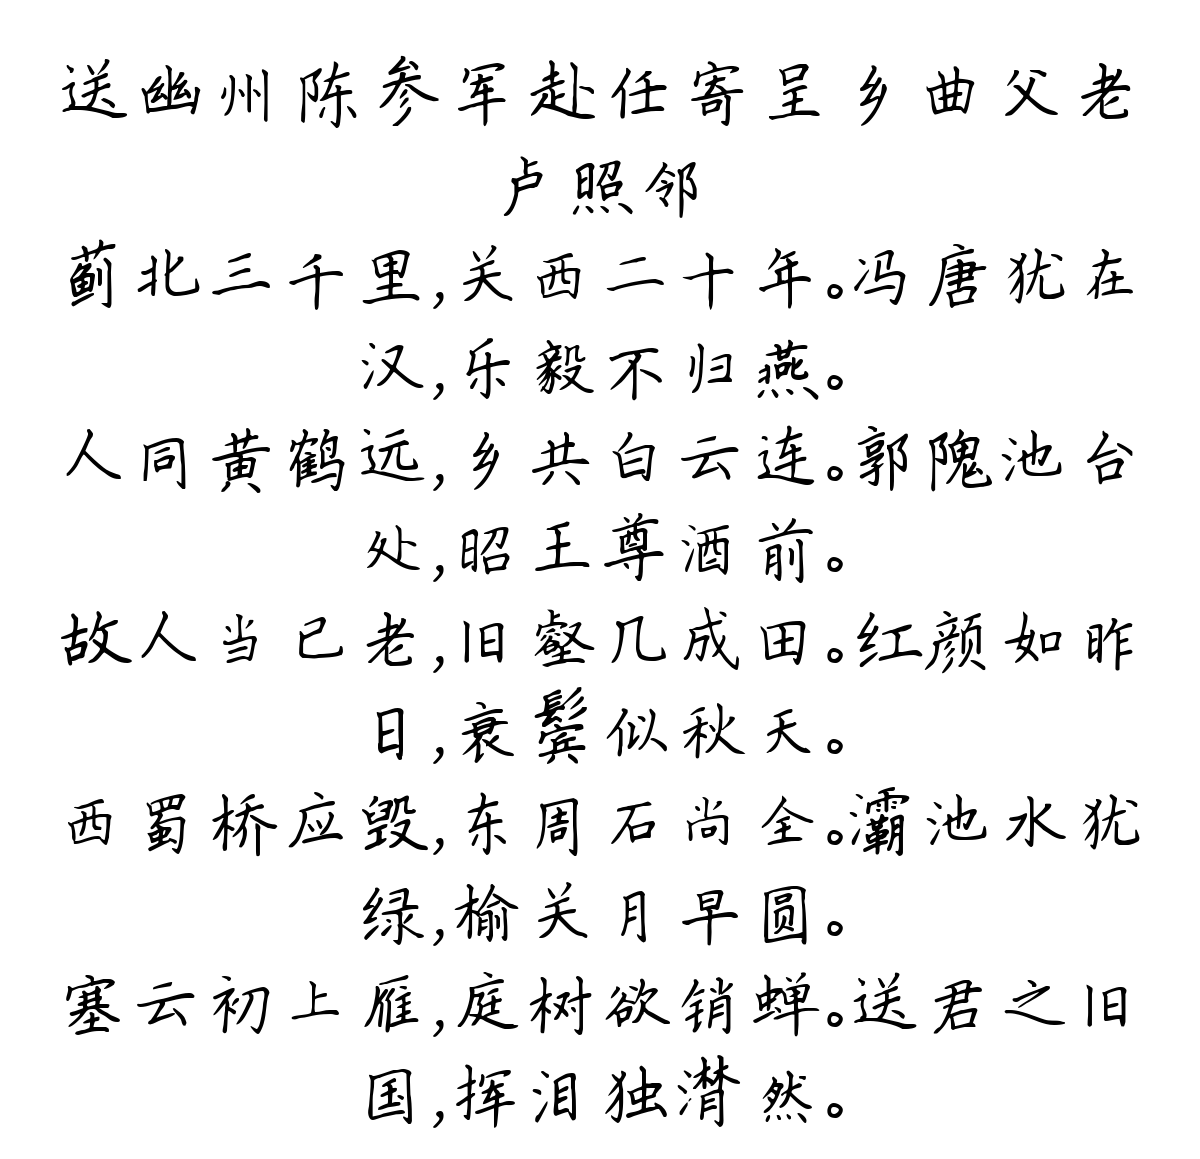 送幽州陈参军赴任寄呈乡曲父老
卢照邻
蓟北三千里,关西二十年。冯唐犹在
汉,乐毅不归燕。
人同黄鹤远,乡共白云连。郭隗池台
处,昭王尊酒前。
故人当已老,旧壑几成田。红颜如昨
日,衰鬓似秋天。
西蜀桥应毁,东周石尚全。灞池水犹
绿,榆关月早圆。
塞云初上雁,庭树欲销蝉。送君之旧
国,挥泪独潸然。